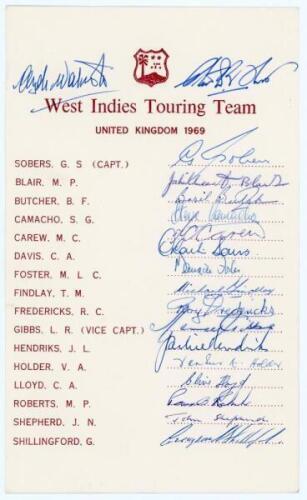 Clyde Walcott
West Indies Touring Team
UNITED KINGDOM 1969
SOBERS, G. S (CAPT.) G. Sobers
BLAIR, M. P. Philbert Blair
BUTCHER, B. F. Basil Butcher
CAMACHO, S. G. Steve Camacho
CAREW, M. C. M C Carew
DAVIS, C. A. Charlie Davis
FOSTER, M. L. C. Maurice Foster
FINDLAY, T. M. Michael Findlay
FREDERICKS, R. C. Roy Fredericks
GIBBS, L. R. (VICE CAPT.) Lance Gibbs
HENDRIKS, J. L. Jackie Hendriks
HOLDER, V. A. Vanburn A. Holder
LLOYD, C. A. Clive Lloyd
ROBERTS, M. P.
SHEPHERD, J. N. John Shepherd
SHILLINGFORD, G. Grayson Shillingford